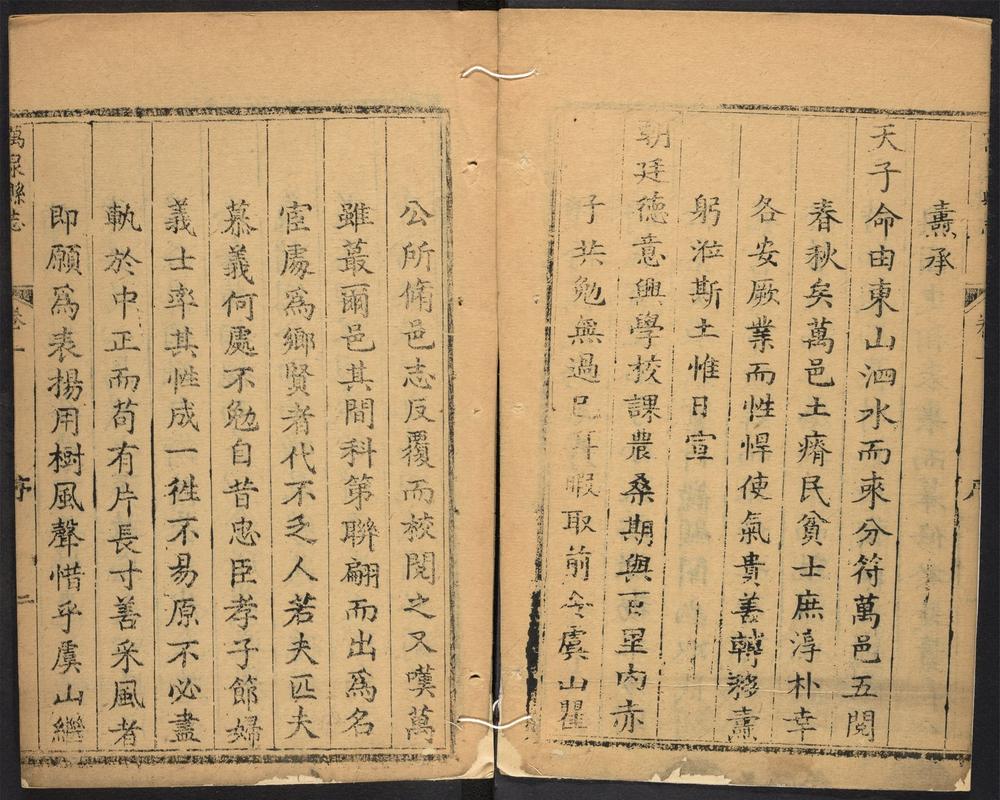 熏承
天子命由東山泗水而來分符萬邑五閱
春秋矣萬邑土瘠民貧士庶淳朴幸
各安厥業而性悍使氣貴善轉移熏
躬涖斯土惟日宣
朝廷德意興學校課農桑期與百里內赤
子共勉無過已耳暇取前令虞山瞿
公所脩邑志反覆而校閱之又嘆萬
雖蕞爾邑其間科第聯翩而出爲名
宦處爲鄉賢者代不乏人若夫匹夫
慕義何處不勉自昔忠臣孝子節婦
義士率其性成一徃不易原不必盡
執於中正而苟有片長寸善采風者
即願爲表揚用樹風聲惜乎虞山繼
萬泉縣志
卷一
序
二